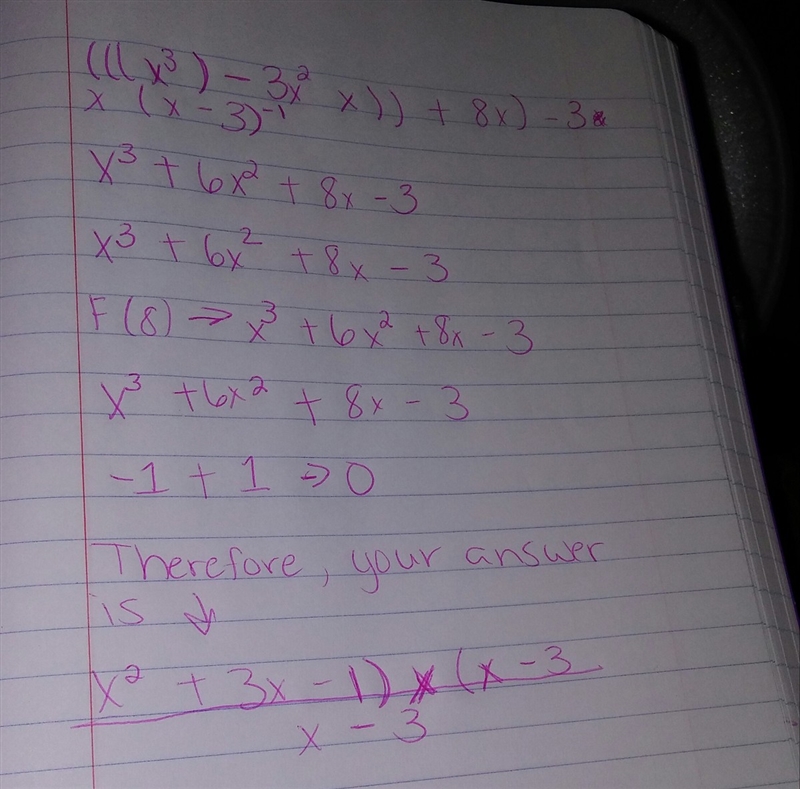 (((x³) - 3x² x)) + 8x) - 3
x (x - 3)⁻¹
x³ + 6x² + 8x - 3
x³ + 6x² + 8x - 3
F(8) → x³ + 6x² + 8x - 3
x³ + 6x² + 8x - 3
-1 + 1 → 0
Therefore, your answer
is ↓
x² + 3x - 1) x (x - 3
x - 3